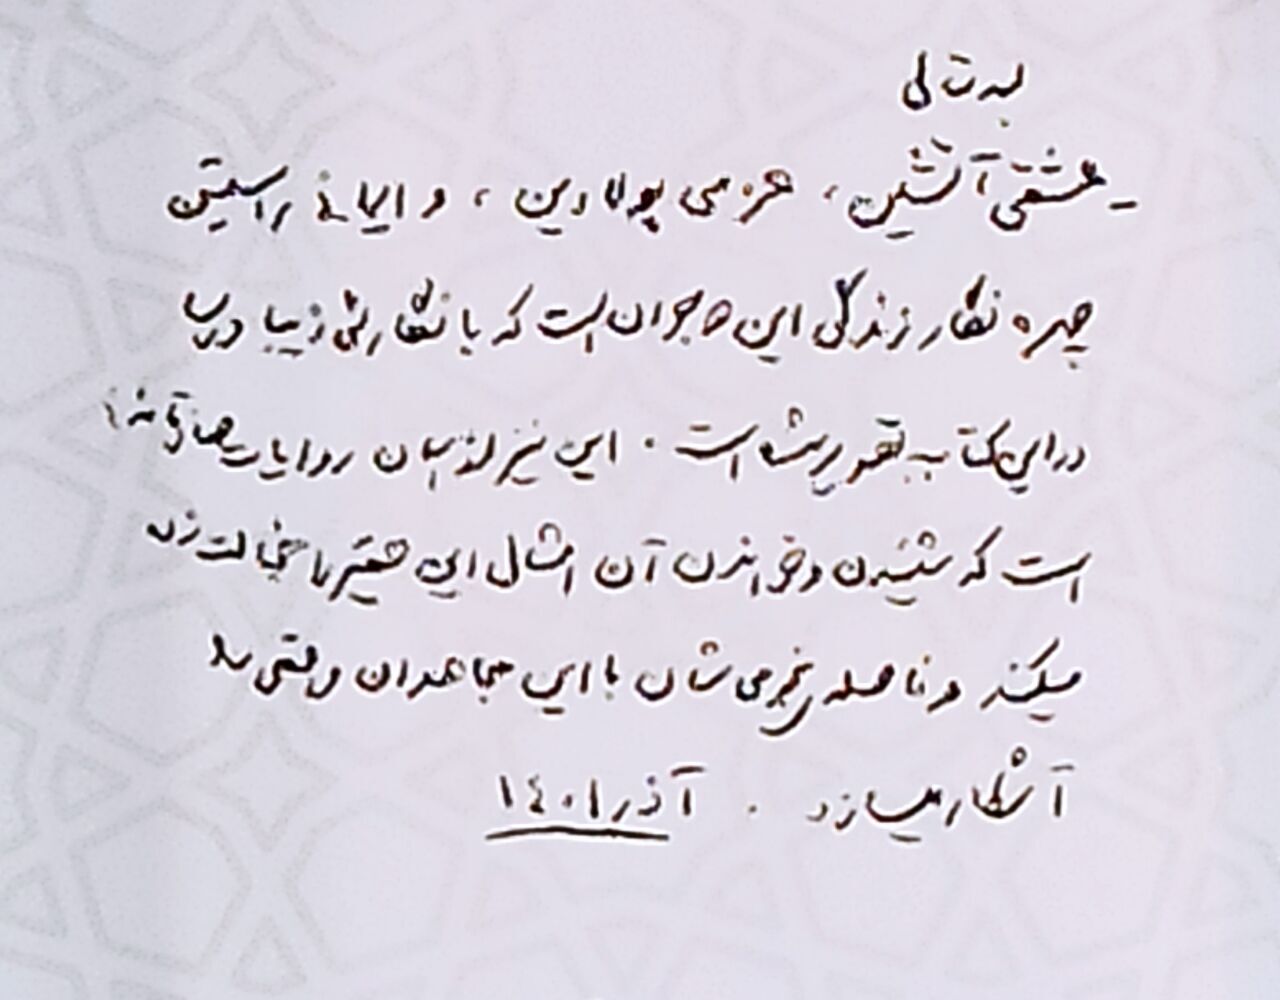 بسمه تعالی
ـ عشقی آتشین، عزمی پولادین، و ایمانی راستین
چهره نگار زندگی این جوان است که با نگارش زیبا و رسا
در این کتاب تصویر شده است. این نیز از آن روایات صادقانه‌ای
است که شنیدن و خواندن آن امثال این حقیر را خجالت زده
میکند و فاصله نجومی شان با این مجاهدان واقعی را
آشکار میسازد. آذر ۱۴۰۱